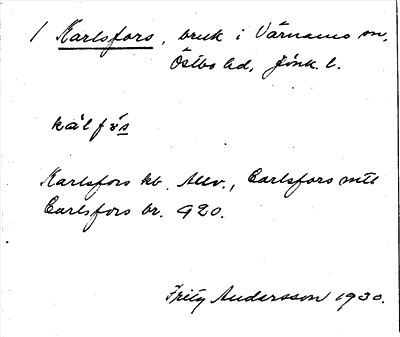 / Karlsfors, bruk i Värnamo sn,
Östbo hd, Jönk. l.
kȧ̀l fǒs
Karlsfors kb. Allv., Carlsfors mtl
Carlsfors br. G20.
Fritz Andersson 1930.